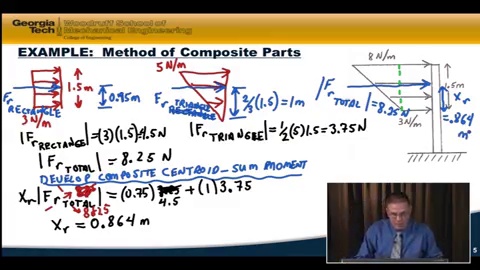 Georgia Tech
Woodruff School of
Mechanical Engineering
College of Engineering
EXAMPLE: Method of Composite Parts
Fr RECTANGLE
1.5m
0.75m
3 N/m
5 N/m
Fr TRIANGLE
2/3(1.5)=1m
8 N/m
|Fr TOTAL|=8.25N
3N/m
1.5m
Xr
=.864
m
|Fr RECTANGLE|=(3)(1.5)4.5N
|Fr TRIANGLE|=1/2(5)1.5=3.75N
|Fr TOTAL|= 8.25 N
DEVELOP COMPOSITE CENTROID-SUM MOMENT
Xr|Fr TOTAL|=(0.75) 4.5+(1)3.75
8.25
Xr = 0.864 m
5